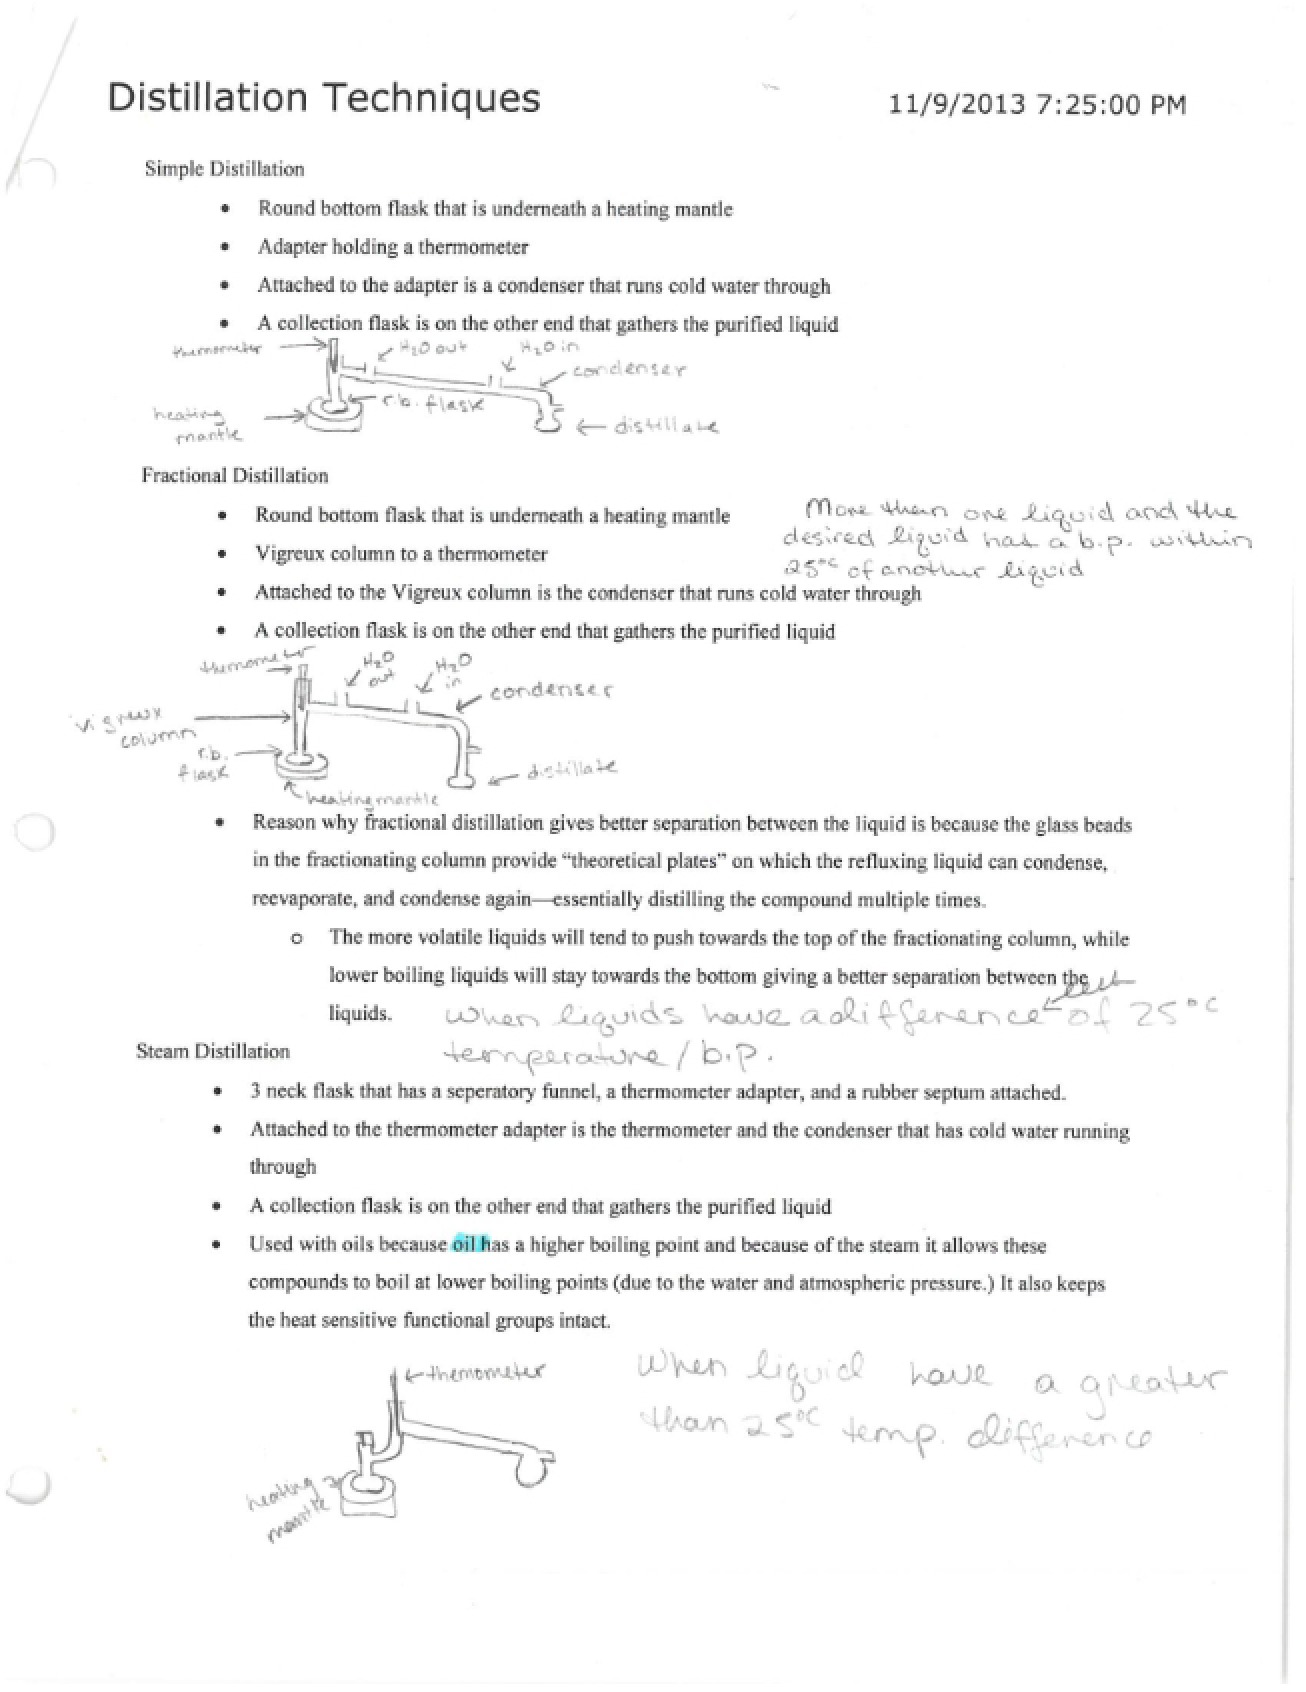 Distillation Techniques 11/9/2013 7:25:00 PM
Simple Distillation
• Round bottom flask that is underneath a heating mantle
• Adapter holding a thermometer
• Attached to the adapter is a condenser that runs cold water through
• A collection flask is on the other end that gathers the purified liquid
thermometer
H2O out
H2O in
condenser
r.b. flask
heating
mantle
distillate
Fractional Distillation
• Round bottom flask that is underneath a heating mantle
More than one liquid and the
desired liquid has a b.p. within
25°C of another liquid
• Vigreux column to a thermometer
• Attached to the Vigreux column is the condenser that runs cold water through
• A collection flask is on the other end that gathers the purified liquid
thermometer
H2O
out
H2O
in
condenser
vigreux
column
r.b.
flask
distillate
heating mantle
• Reason why fractional distillation gives better separation between the liquid is because the glass beads
in the fractionating column provide “theoretical plates” on which the refluxing liquid can condense,
reevaporate, and condense again—essentially distilling the compound multiple times.
o The more volatile liquids will tend to push towards the top of the fractionating column, while
lower boiling liquids will stay towards the bottom giving a better separation between the
liquids.
when liquids have a difference of 25°C
temperature / b.p.
Steam Distillation
• 3 neck flask that has a seperatory funnel, a thermometer adapter, and a rubber septum attached.
• Attached to the thermometer adapter is the thermometer and the condenser that has cold water running
through
• A collection flask is on the other end that gathers the purified liquid
• Used with oils because oil has a higher boiling point and because of the steam it allows these
compounds to boil at lower boiling points (due to the water and atmospheric pressure.) It also keeps
the heat sensitive functional groups intact.
themometer
heating
mantle
When liquid have a greater
than 25°C temp. difference